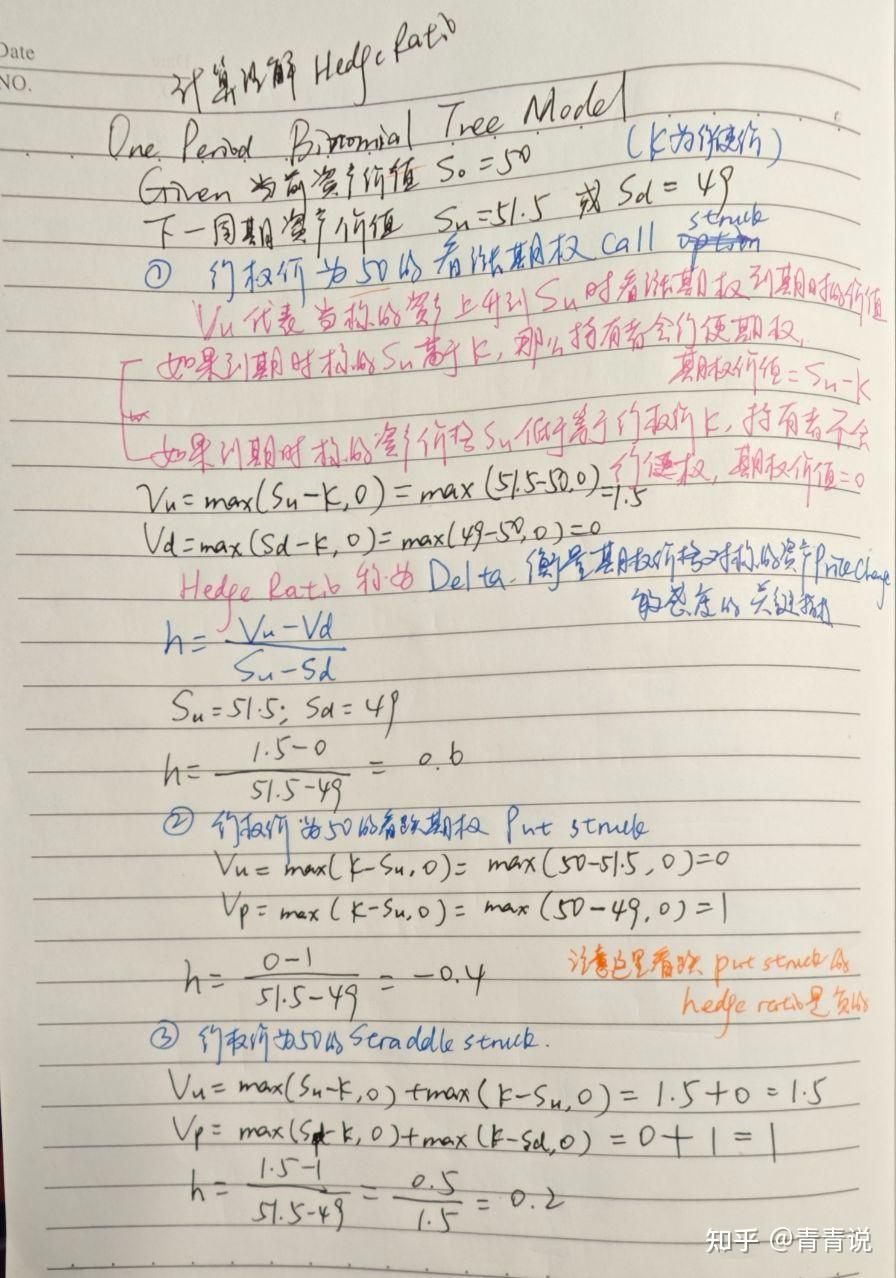 Date
NO.
计算以解 Hedge Ratio
One Period Binomial Tree Model
(K为行使价)
Given 当前资产价值 S₀=50
下一周期资产价值 Su=51.5 或 Sd=49
① 行权价为50的看涨期权 call struck
Vu代表当标的资产上升到Su时看涨期权到期时的价值
如果到期时标的Su高于K,那么持有者会行使期权,
期权价值=Su-K
如果到期时标的资产价格Su低于等于行权价K,持有者不会
行使权,期权价值=0
Vu=max(Su-K,0)=max(51.5-50,0)=1.5
Vd=max(Sd-K,0)=max(49-50,0)=0
Hedge Ratio 称为 Delta, 衡量期权价格对标的资产Price change
敏感度的关键指标
h= (Vu-Vd)/(Su-Sd)
Su=51.5; Sd=49
h= (1.5-0)/(51.5-49) = 0.6
② 行权价为50的看跌期权 Put struck
Vu=max(K-Su,0)=max(50-51.5,0)=0
Vp=max(K-Su,0)=max(50-49,0)=1
h= (0-1)/(51.5-49) = -0.4
注意这里看跌 put struck的
hedge ratio是负的
③ 行权价为50的 Straddle struck.
Vu=max(Su-K,0)+max(K-Su,0)=1.5+0=1.5
Vp=max(Sd-K,0)+max(K-Sd,0)=0+1=1
h= (1.5-1)/(51.5-49) = 0.5/1.5 = 0.2
知乎 @青青说